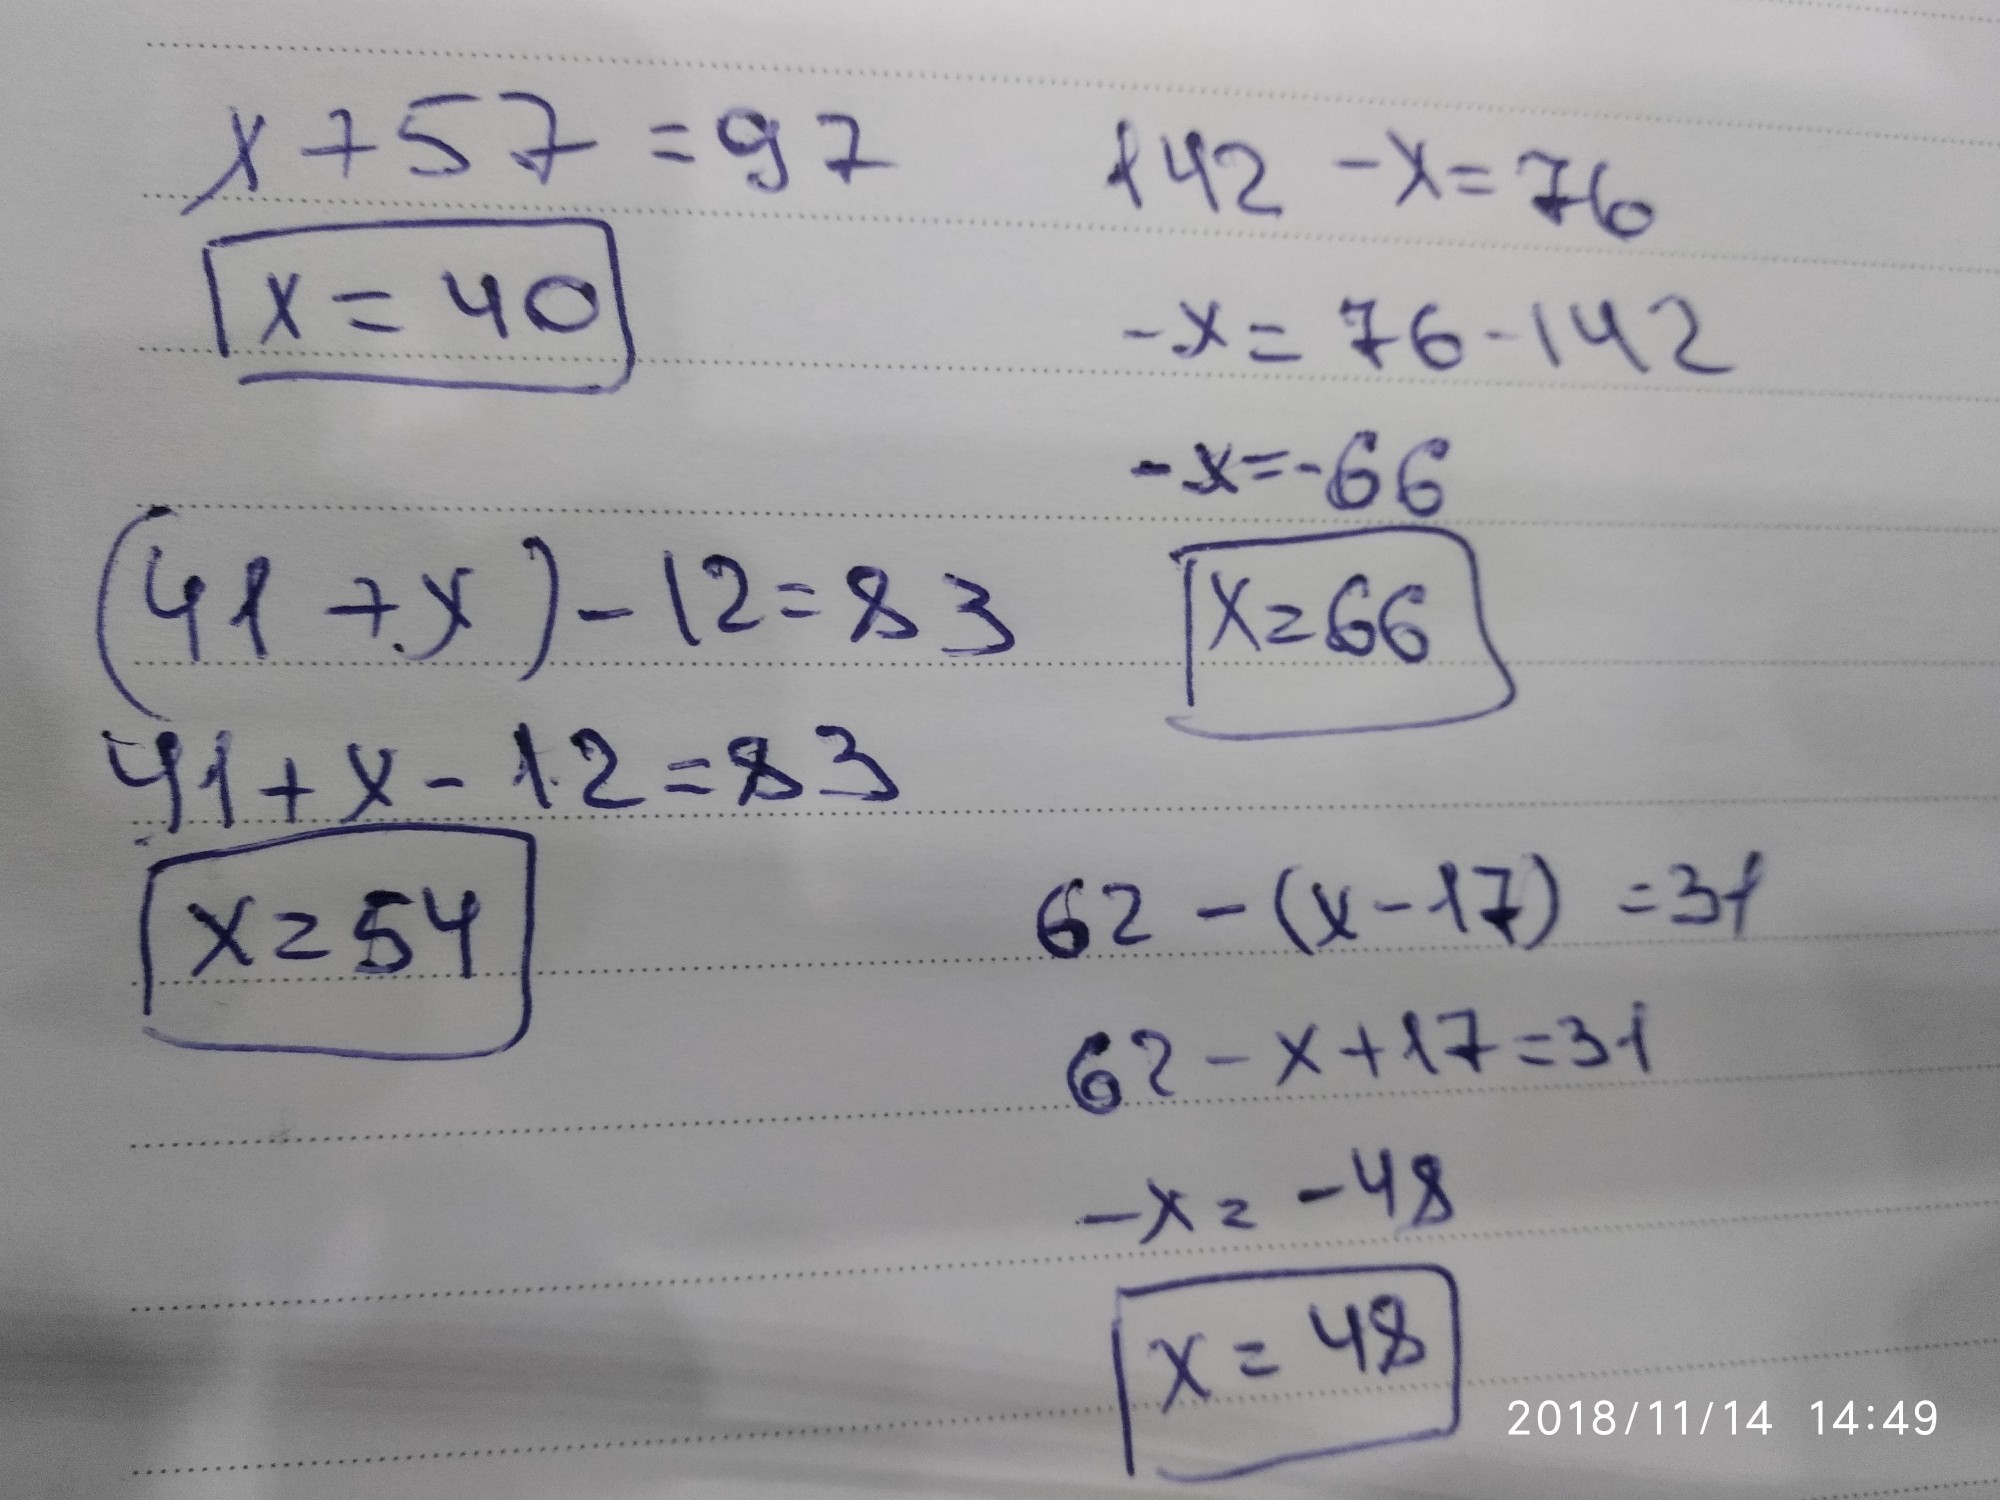 x + 57 = 97
x = 40
(41 + x) - 12 = 83
41 + x - 12 = 83
x = 54
142 - x = 76
-x = 76 - 142
-x = -66
x = 66
62 - (x - 17) = 31
62 - x + 17 = 31
-x = -48
x = 48
2018/11/14 14:49